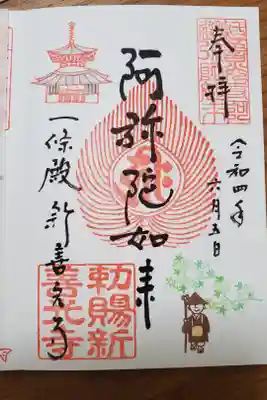 奉拝
令和四年
六月五日
阿弥陀如来
一條殿新善光寺
勅賜新
善光寺